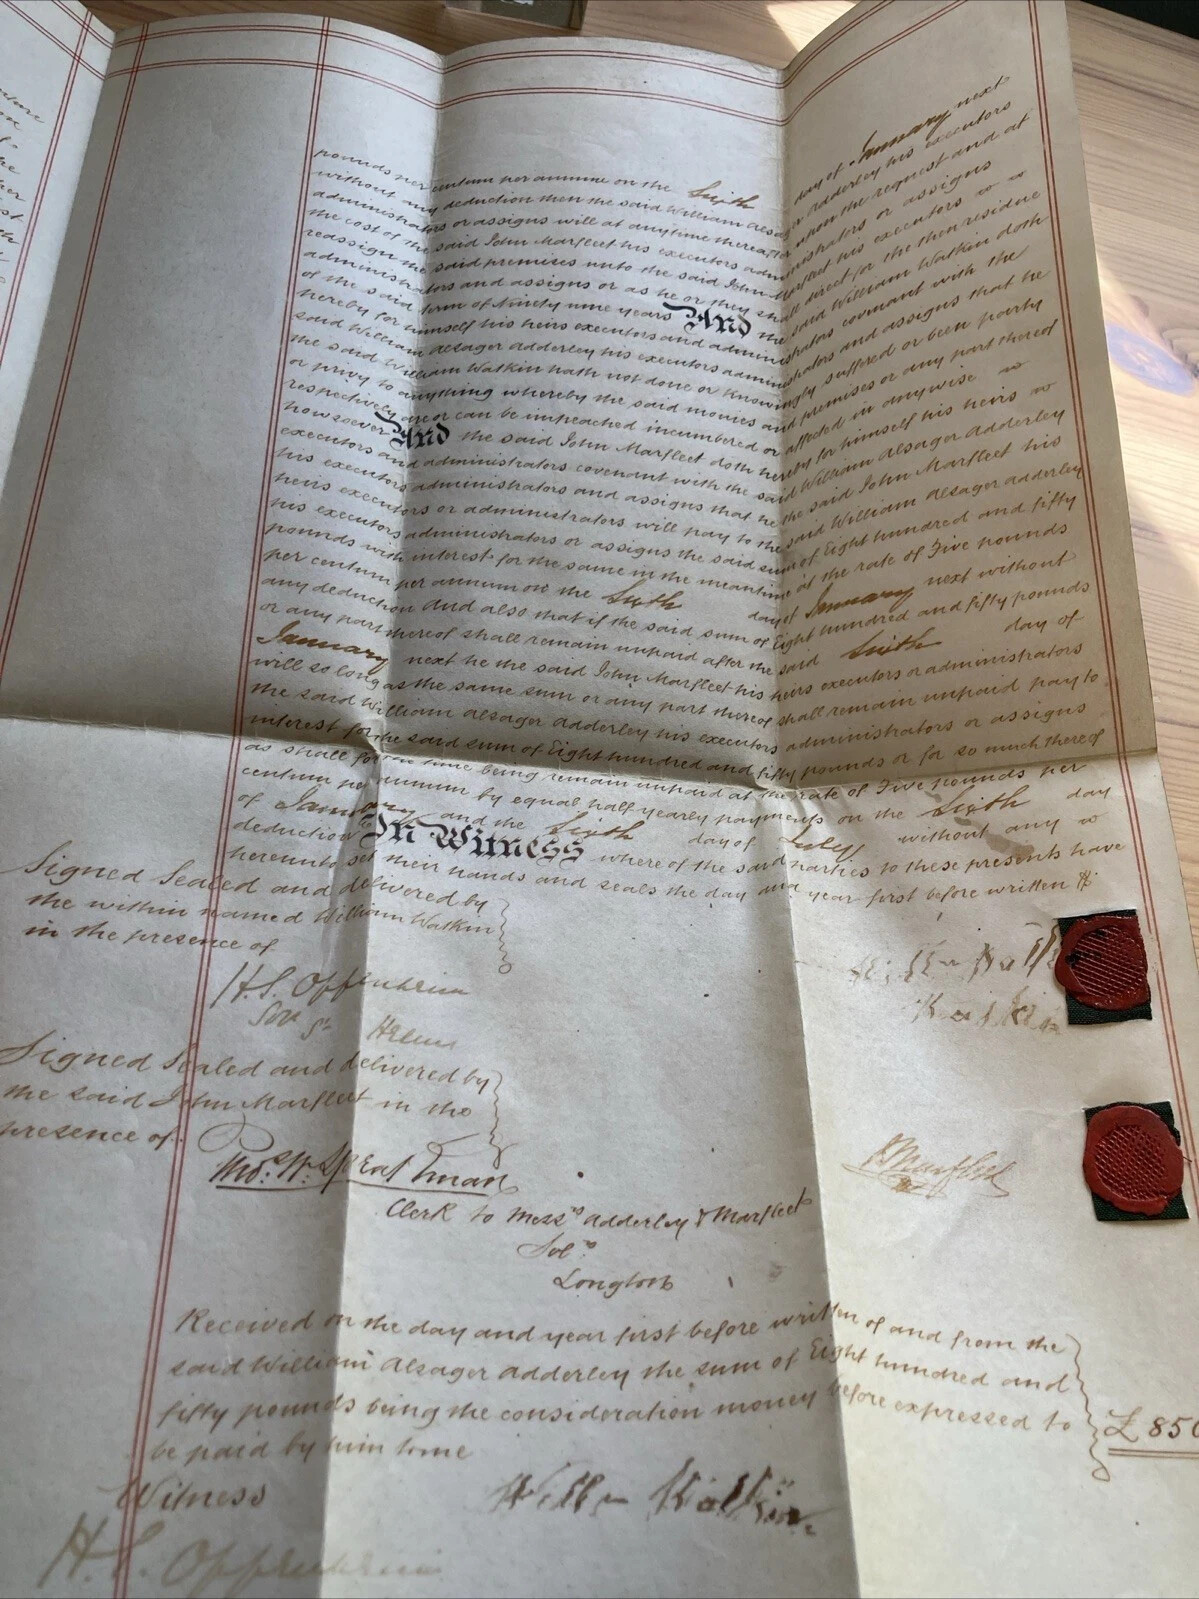 pounds per centum per annum on the Sixth day of January next
without any deduction then the said William Alsager Adderley his executors
administrators or assigns will at anytime thereafter upon the request and at
the cost of the said John Marfleet his executors administrators or assigns
reassign the said premises unto the said John Marfleet his executors
administrators and assigns or as he or they shall direct for the then residue
of the said term of Ninety nine years And the said William Watkin doth
hereby for himself his heirs executors and administrators covenant with the
said William Alsager Adderley his executors administrators and assigns that he
the said William Watkin hath not done or knowingly suffered or been party
or privy to anything whereby the said monies and premises or any part thereof
respectively are or can be impeached incumbered or affected in anywise
howsoever And the said John Marfleet doth hereby for himself his heirs
executors and administrators covenant with the said William Alsager Adderley
his executors administrators and assigns that he the said John Marfleet his
heirs executors or administrators will pay to the said William Alsager Adderley
his executors administrators or assigns the said sum of Eight hundred and fifty
pounds with interest for the same in the meantime at the rate of Five pounds
per centum per annum on the Sixth day of January next without
any deduction And also that if the said sum of Eight hundred and fifty pounds
or any part thereof shall remain unpaid after the said Sixth day of
January next he the said John Marfleet his heirs executors or administrators
will so long as the same sum or any part thereof shall remain unpaid pay to
the said William Alsager Adderley his executors administrators or assigns
interest for the said sum of Eight hundred and fifty pounds or for so much thereof
as shall for the time being remain unpaid at the rate of Five pounds per
centum per annum by equal half yearly payments on the Sixth day
of January and the Sixth day of July without any
deduction In Witness where of the said parties to these presents have
hereunto set their hands and seals the day and year first before written
Signed Sealed and delivered by
the within named William Watkin
in the presence of
H. S. Oppenheim
Sor St Helens
Signed Sealed and delivered by
the said John Marfleet in the
presence of
Thos. W.
J Marfleet
Clerk to Messrs Adderley & Marfleet
Solrs
Longton
Received on the day and year first before written of and from the
said William Alsager Adderley the sum of Eight hundred and
fifty pounds being the consideration money before expressed to
be paid by him to me
£850
Witness
William Watkin
H. S. Oppenheim